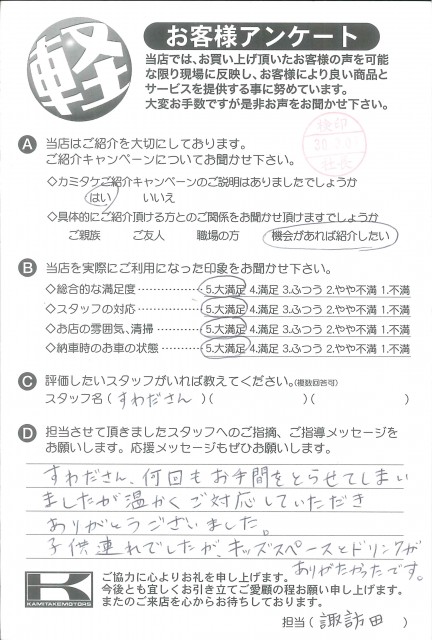 軽
お客様アンケート
当店では、お買い上げ頂いたお客様の声を可能
な限り現場に反映し、お客様により良い商品と
サービスを提供する事に努めています。
大変お手数ですが是非お声をお聞かせ下さい。
検印
社長
A 当店はご紹介を大切にしております。
ご紹介キャンペーンについてお聞かせ下さい。
◇カミタケご紹介キャンペーンのご説明はありましたでしょうか
はい いいえ
◇具体的にご紹介頂ける方とのご関係をお聞かせ頂けますでしょうか
ご親族 ご友人 職場の方 機会があれば紹介したい
B 当店を実際にご利用になった印象をお聞かせ下さい。
◇総合的な満足度……………5.大満足 4.満足 3.ふつう 2.やや不満 1.不満
◇スタッフの対応……………5.大満足 4.満足 3.ふつう 2.やや不満 1.不満
◇お店の雰囲気、清掃………5.大満足 4.満足 3.ふつう 2.やや不満 1.不満
◇納車時のお車の状態………5.大満足 4.満足 3.ふつう 2.やや不満 1.不満
C 評価したいスタッフがいれば教えてください。(複数回答可)
スタッフ名(すわださん)( )( )
D 担当させて頂きましたスタッフへのご指摘、ご指導メッセージを
お願いします。応援メッセージもぜひお願いします。
すわださん、何回もお手間をとらせてしまい
ましたが温かくご対応していただき
ありがとうございました。
子供連れでしたが、キッズスペースとドリンクが
ありがたかったです。
K
KAMITAKE MOTORS
ご協力に心よりお礼を申し上げます。
今後とも宜しくお引き立てご愛顧の程お願い申し上げます。
またのご来店を心からお待ちしております。
担当(諏訪田)